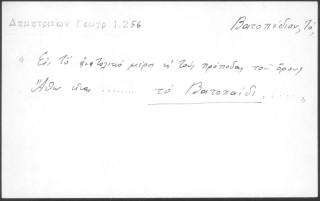 Δημητριέων Γεωγρ 1.256
Βατοπέδιον, Τό
« Εἰς τὸ ἀνατολικὸ μέρη κ' τοὺς πρόποδας τοῦ ὄρους
Ἄθω εἶναι ........ τὸ Βατοπαίδι, ...... »